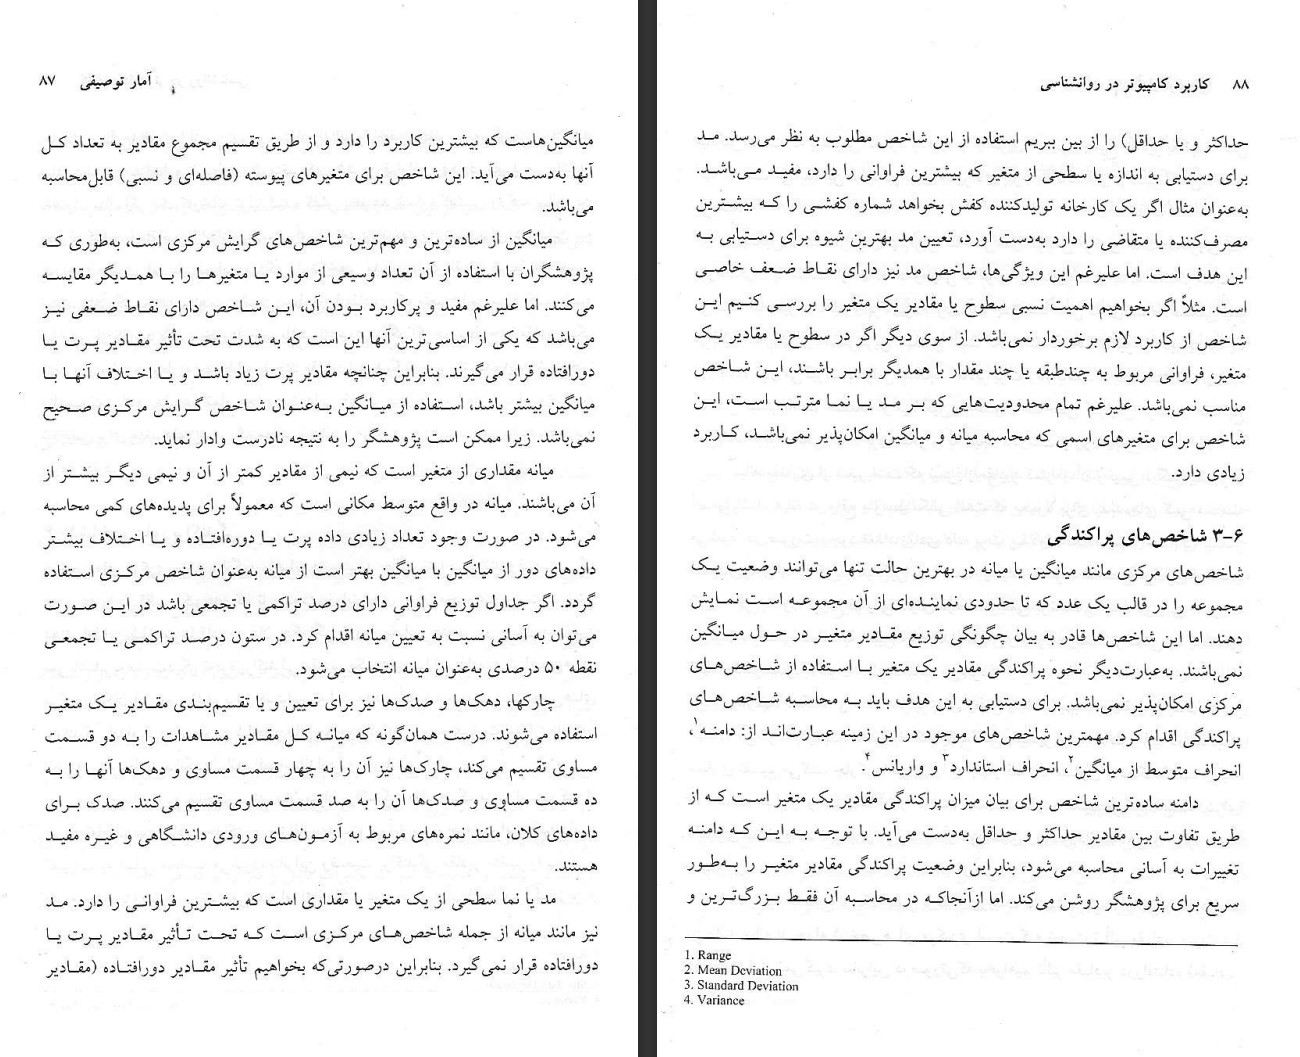 آمار توصیفی ۸۷
میانگین‌هاست که بیشترین کاربرد را دارد و از طریق تقسیم مجموع مقادیر به تعداد کل
آنها به‌دست می‌آید. این شاخص برای متغیرهای پیوسته (فاصله‌ای و نسبی) قابل‌محاسبه
می‌باشد.
میانگین از ساده‌ترین و مهم‌ترین شاخص‌های گرایش مرکزی است، به‌طوری که
پژوهشگران با استفاده از آن تعداد وسیعی از موارد یا متغیرها را با همدیگر مقایسه
می‌کنند. اما علیرغم مفید و پرکاربرد بودن آن، این شاخص دارای نقاط ضعفی نیز
می‌باشد که یکی از اساسی‌ترین آنها این است که به شدت تحت تأثیر مقادیر پرت یا
دورافتاده قرار می‌گیرند. بنابراین چنانچه مقادیر پرت زیاد باشد و یا اختلاف آنها با
میانگین بیشتر باشد، استفاده از میانگین به‌عنوان شاخص گرایش مرکزی صحیح
نمی‌باشد. زیرا ممکن است پژوهشگر را به نتیجه نادرست وادار نماید.
میانه مقداری از متغیر است که نیمی از مقادیر کمتر از آن و نیمی دیگر بیشتر از
آن می‌باشند. میانه در واقع متوسط مکانی است که معمولاً برای پدیده‌های کمی محاسبه
می‌شود. در صورت وجود تعداد زیادی داده پرت یا دوره‌افتاده و یا اختلاف بیشتر
داده‌های دور از میانگین با میانگین بهتر است از میانه به‌عنوان شاخص مرکزی استفاده
گردد. اگر جداول توزیع فراوانی دارای درصد تراکمی یا تجمعی باشد در این صورت
می‌توان به آسانی نسبت به تعیین میانه اقدام کرد. در ستون درصد تراکمی یا تجمعی
نقطه ۵۰ درصدی به‌عنوان میانه انتخاب می‌شود.
چارکها، دهک‌ها و صدک‌ها نیز برای تعیین و یا تقسیم‌بندی مقادیر یک متغیر
استفاده می‌شوند. درست همان‌گونه که میانه کل مقادیر مشاهدات را به دو قسمت
مساوی تقسیم می‌کند، چارک‌ها نیز آن را به چهار قسمت مساوی و دهک‌ها آنها را به
ده قسمت مساوی و صدک‌ها آن را به صد قسمت مساوی تقسیم می‌کنند. صدک برای
داده‌های کلان، مانند نمره‌های مربوط به آزمون‌های ورودی دانشگاهی و غیره مفید
هستند.
مد یا نما سطحی از یک متغیر یا مقداری است که بیشترین فراوانی را دارد. مد
نیز مانند میانه از جمله شاخص‌های مرکزی است که تحت تأثیر مقادیر پرت یا
دورافتاده قرار نمی‌گیرد. بنابراین درصورتی‌که بخواهیم تأثیر مقادیر دورافتاده (مقادیر
۸۸ کاربرد کامپیوتر در روانشناسی
حداکثر و یا حداقل) را از بین ببریم استفاده از این شاخص مطلوب به نظر می‌رسد. مد
برای دستیابی به اندازه یا سطحی از متغیر که بیشترین فراوانی را دارد، مفید می‌باشد.
به‌عنوان مثال اگر یک کارخانه تولیدکننده کفش بخواهد شماره کفشی را که بیشترین
مصرف‌کننده یا متقاضی را دارد به‌دست آورد، تعیین مد بهترین شیوه برای دستیابی به
این هدف است. اما علیرغم این ویژگی‌ها، شاخص مد نیز دارای نقاط ضعف خاصی
است. مثلاً اگر بخواهیم اهمیت نسبی سطوح یا مقادیر یک متغیر را بررسی کنیم این
شاخص از کاربرد لازم برخوردار نمی‌باشد. از سوی دیگر اگر در سطوح یا مقادیر یک
متغیر، فراوانی مربوط به چندطبقه یا چند مقدار با همدیگر برابر باشند، این شاخص
مناسب نمی‌باشد. علیرغم تمام محدودیت‌هایی که بر مد یا نما مترتب است، این
شاخص برای متغیرهای اسمی که محاسبه میانه و میانگین امکان‌پذیر نمی‌باشد، کاربرد
زیادی دارد.
۳-۶ شاخص‌های پراکندگی
شاخص‌های مرکزی مانند میانگین یا میانه در بهترین حالت تنها می‌توانند وضعیت یک
مجموعه را در قالب یک عدد که تا حدودی نماینده‌ای از آن مجموعه است نمایش
دهند. اما این شاخص‌ها قادر به بیان چگونگی توزیع مقادیر متغیر در حول میانگین
نمی‌باشند. به‌عبارت‌دیگر نحوه پراکندگی مقادیر یک متغیر با استفاده از شاخص‌های
مرکزی امکان‌پذیر نمی‌باشد. برای دستیابی به این هدف باید به محاسبه شاخص‌های
پراکندگی اقدام کرد. مهمترین شاخص‌های موجود در این زمینه عبارت‌اند از: دامنه۱،
انحراف متوسط از میانگین۲، انحراف استاندارد۳ و واریانس۴.
دامنه ساده‌ترین شاخص برای بیان میزان پراکندگی مقادیر یک متغیر است که از
طریق تفاوت بین مقادیر حداکثر و حداقل به‌دست می‌آید. با توجه به این که دامنه
تغییرات به آسانی محاسبه می‌شود، بنابراین وضعیت پراکندگی مقادیر متغیر را به‌طور
سریع برای پژوهشگر روشن می‌کند. اما ازآنجاکه در محاسبه آن فقط بزرگ‌ترین و
1. Range
2. Mean Deviation
3. Standard Deviation
4. Variance